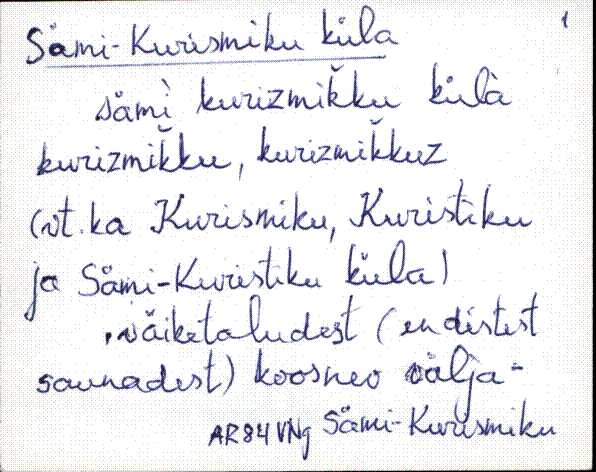 1
Sämi-Kurismiku küla
sämì kurizmǐkku külà
kurizmǐkku, kurizmǐkkuz
(vt. ka Kurismiku, Kuristiku
ja Sämi-Kuristiku küla)
väiketaludest (endistest
saunadest) koosnev välja-
AR84 VNg Sämi-Kurismiku